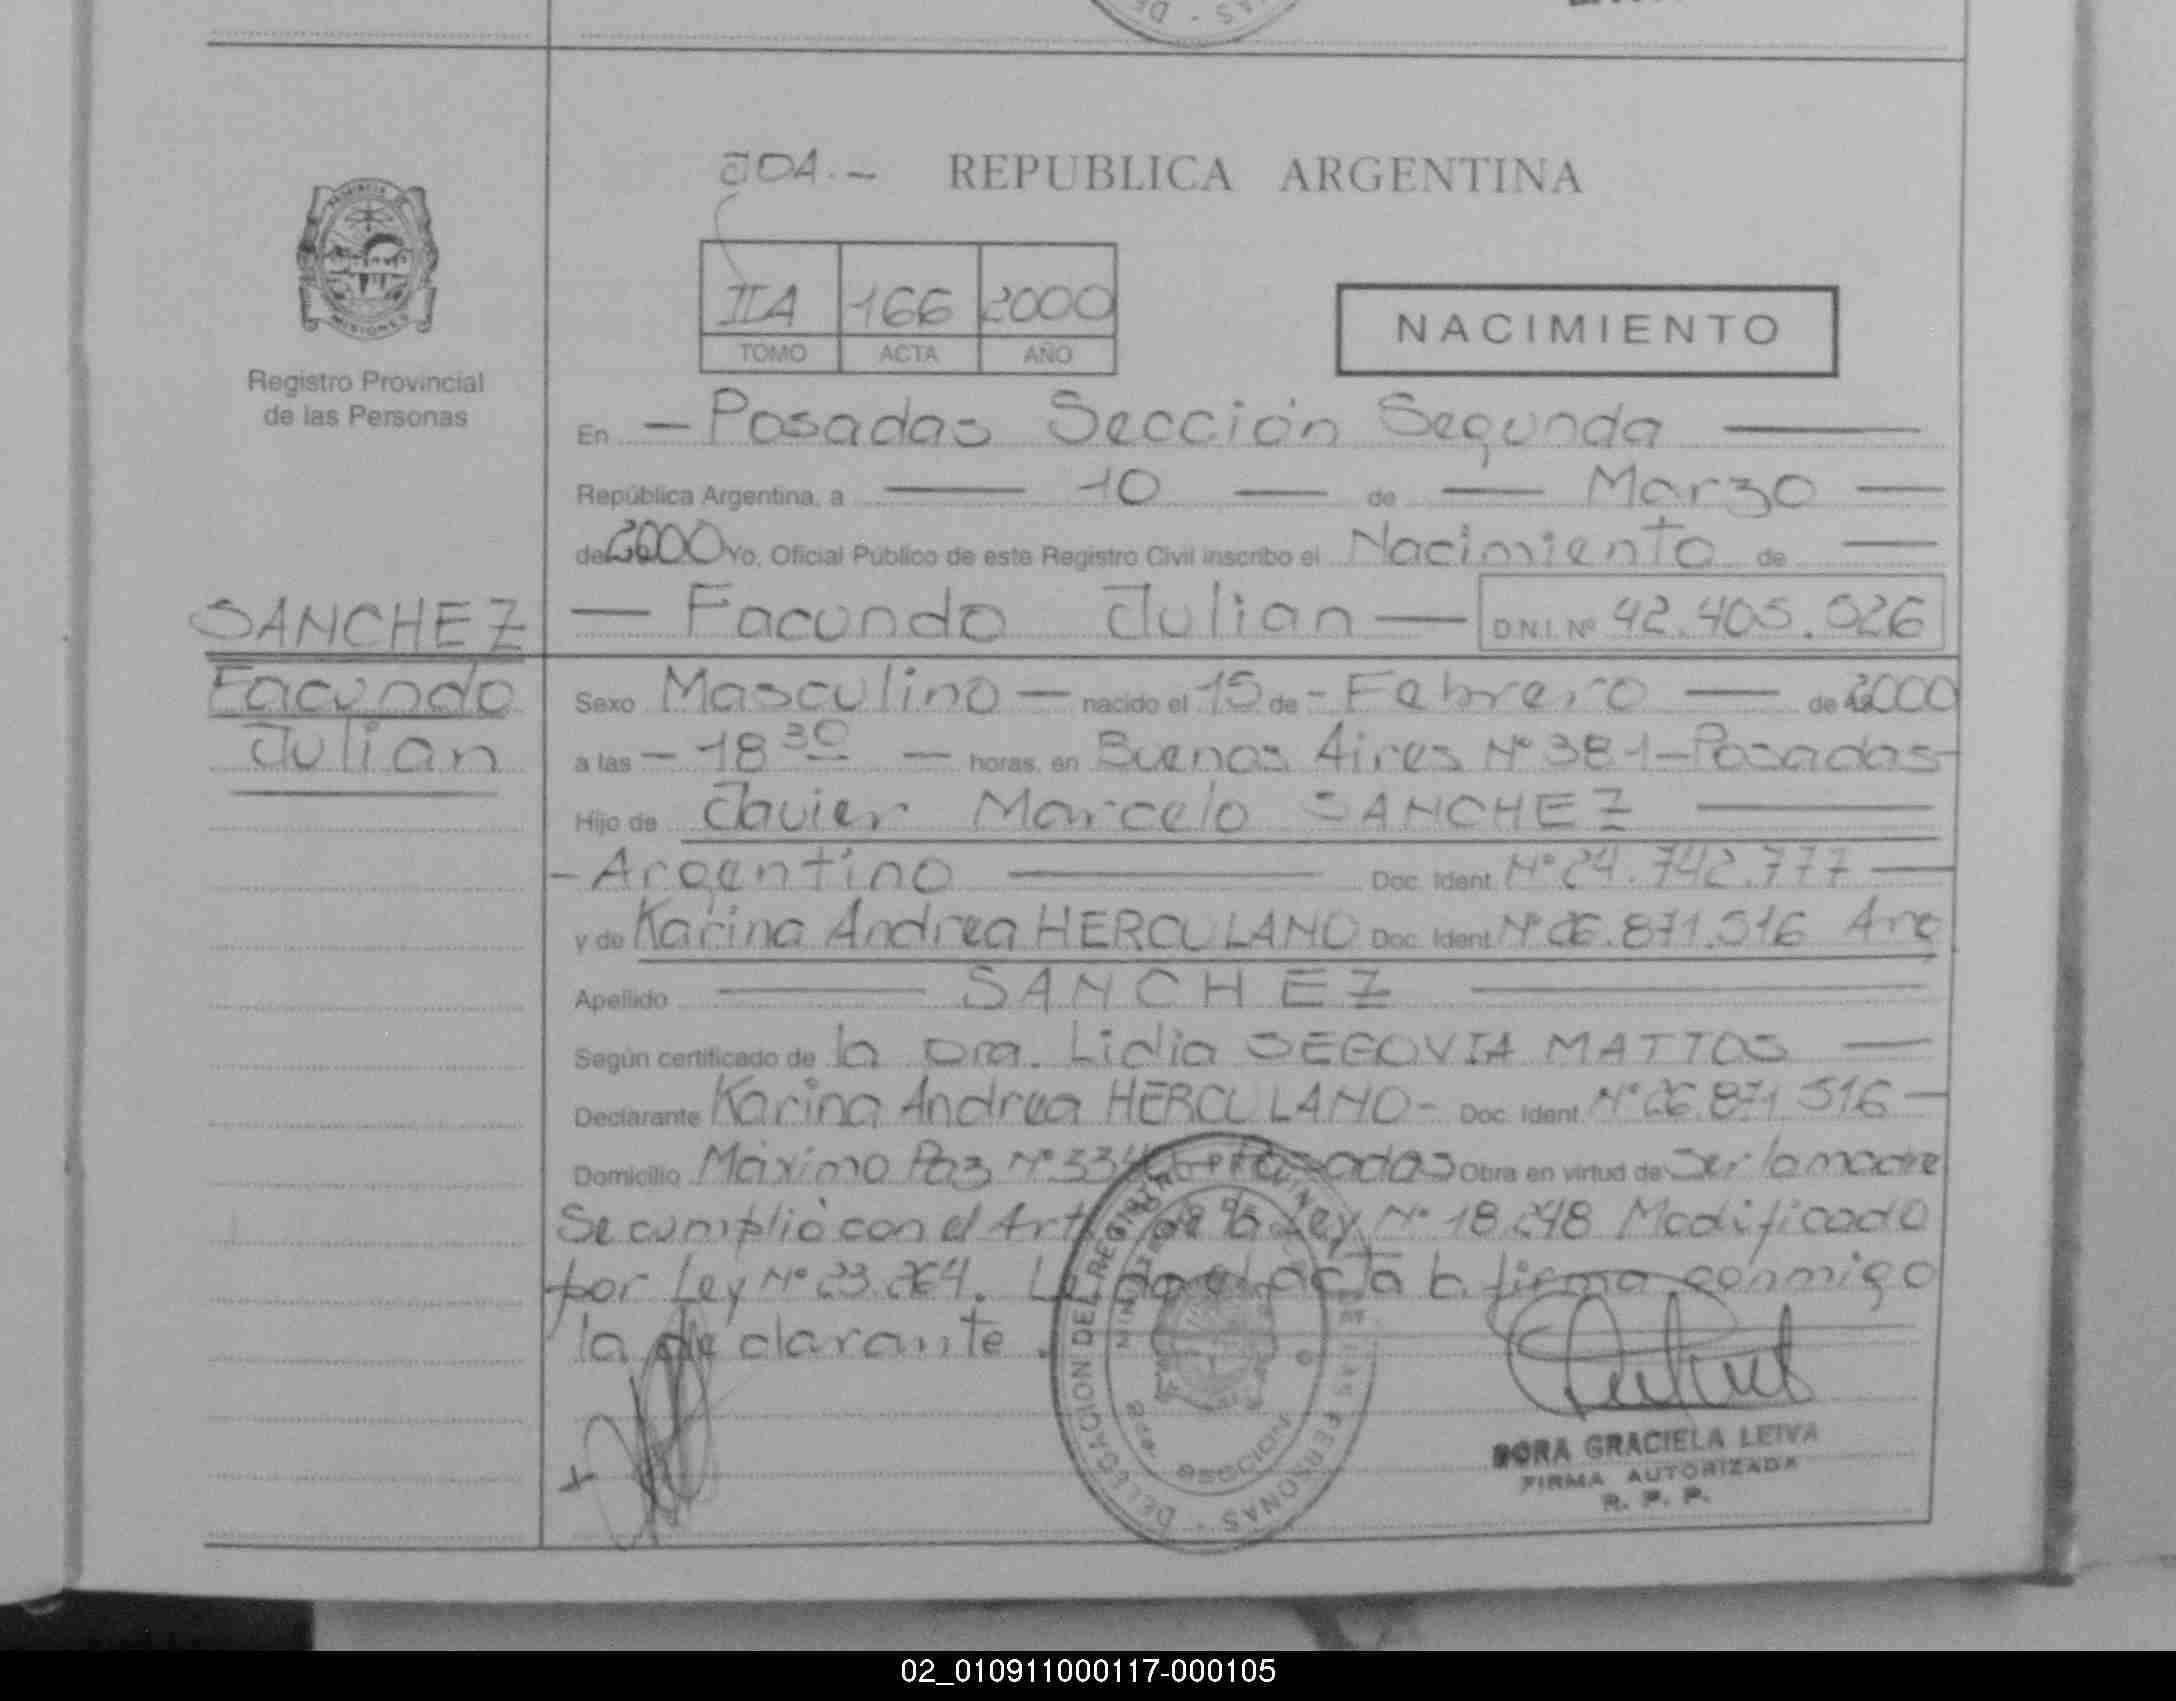 JDA.- REPUBLICA ARGENTINA
IIA 166 2000
TOMO ACTA AÑO
NACIMIENTO
Registro Provincial
de las Personas
En - Posadas Sección Segunda
República Argentina, a 10 de Marzo
de 2000 Yo, Oficial Público de este Registro Civil inscribo el Nacimiento de
SANCHEZ
Facundo
Julian
Facundo Julian D.N.I. Nº 42.405.526
Sexo Masculino - nacido el 15 de - Febrero de 2000
a las - 18 30 - horas, en Buenos Aires Nº 381-Posadas-
Hijo de Javier Marcelo SANCHEZ
- Argentino Doc. Ident. Nº 24.742.777
y de Karina Andrea HERCULANO Doc. Ident. Nº 26.871.516 Arg
Apellido SANCHEZ
Según certificado de la Dra. Lidia SEGOVIA MATTOS
Declarante Karina Andrea HERCULANO - Doc. Ident. Nº 26.871.516 -
Domicilio Máximo Paz Nº Posadas Obra en virtud de Ser la madre
Se cumplió con el Art de la Ley Nº 18.248 Modificado
por Ley Nº 23.264. Leída el acta la firma conmigo
la declarante.
DELEGACION DEL REGISTRO PROVINCIAL DE LAS PERSONAS
SECCION
DORA GRACIELA LEIVA
FIRMA AUTORIZADA
R. P. P.
02_010911000117-000105